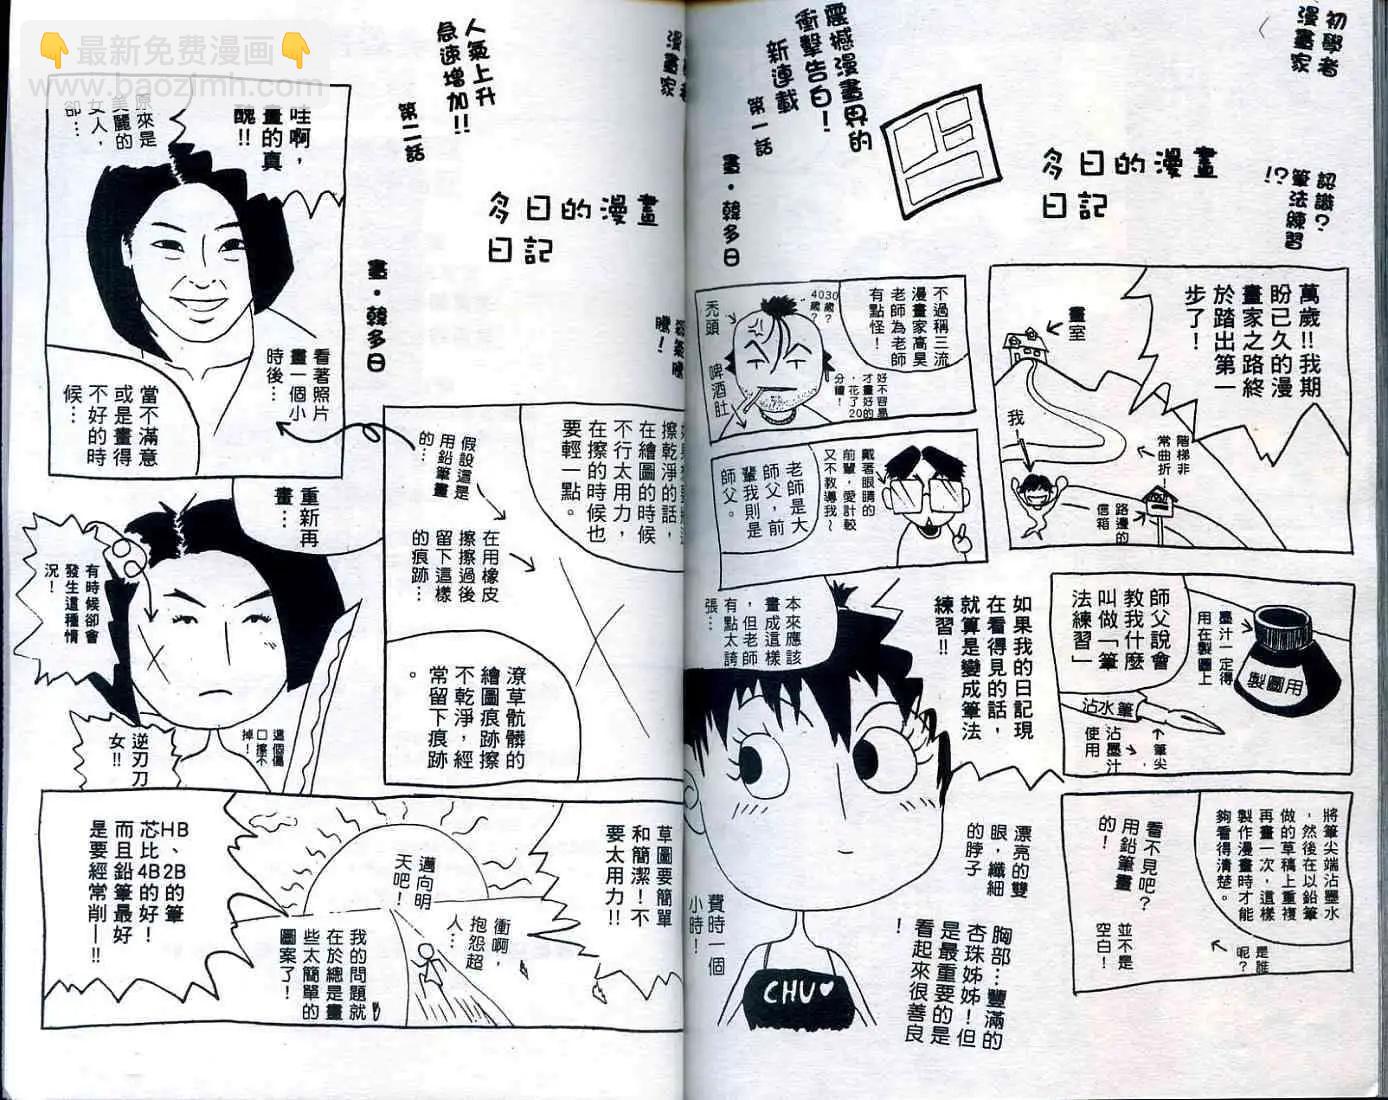 最新免费漫画
www.baozimh.com
初學者
漫畫家
認識?
筆法練習
!?
多日的漫畫
日記
震撼漫畫界的
衝擊告白!
新連載
第一話
畫・韓多日
萬歲!!我期
盼已久的漫
畫家之路終
於踏出第一
步了!
畫室
我!
階梯非
常曲折!
路邊的
信箱
不過稱三流
漫畫家高昊
老師為老師
有點怪!
4030
歲?歲?
禿頭
啤酒肚
好不容易
才畫好的
,花了20
分鐘!
戴著眼睛的
前輩,愛計較
又不教導我~
老師是大
師父,前
輩我則是
師父。
師父說會
教我什麼
叫做「筆
法練習」
墨汁一定得
用在製圖上
製圖用
沾水筆
筆尖
沾墨汁
使用
如果我的日記現
在看得見的話,
就算是變成筆法
練習!!
本來應該
畫成這樣
,但老師
有點太誇
張…
將筆尖端沾墨水
,然後在以鉛筆
做的草稿上重複
再畫一次,這樣
製作漫畫時才能
夠看得清楚。
看不見吧?
用鉛筆畫
的!
是誰
呢?
並不是
空白!
漂亮的雙
眼,纖細
的脖子
胸部…豐滿的
杏珠姊姊!但
是最重要的是
看起來很善良
!
費時一個
小時!
CHU♥
漫畫家
人氣上升
急速增加!!
第二話
多日的漫畫
日記
畫・韓多日
哇啊,
畫的真
醜!!
原來是
美麗的
女人,
卻…
看著照片
畫一個小
時後…
當不滿意
或是畫得
不好的時
候…
擦乾淨的話,
在繪圖的時候
不行太用力,
在擦的時候也
要輕一點。
假設這是
用鉛筆畫
的…
在用橡皮
擦擦過後
留下這樣
的痕跡…
潦草骯髒的
繪圖痕跡擦
不乾淨,經
常留下痕跡
。
重新再
畫…
有時候卻會
發生這種情
況!
這個傷
口擦不
掉!
逆刃刀
女!!
草圖要簡單
和簡潔!不
要太用力!!
邁向明
天吧!
衝啊,
抱怨超
人…
我的問題就
在於總是畫
些太簡單的
圖案了!
HB、2B的筆
芯比4B的好!
而且鉛筆最好
是要經常削—!!